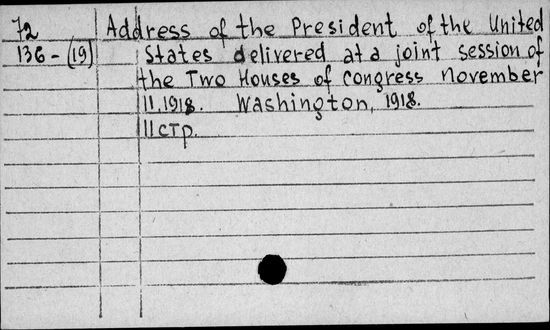 72 Address of the President of the United
136-(19) States delivered at a joint session of
the Two Houses of Congress november
11.1918. Washington, 1918.
11 стр.